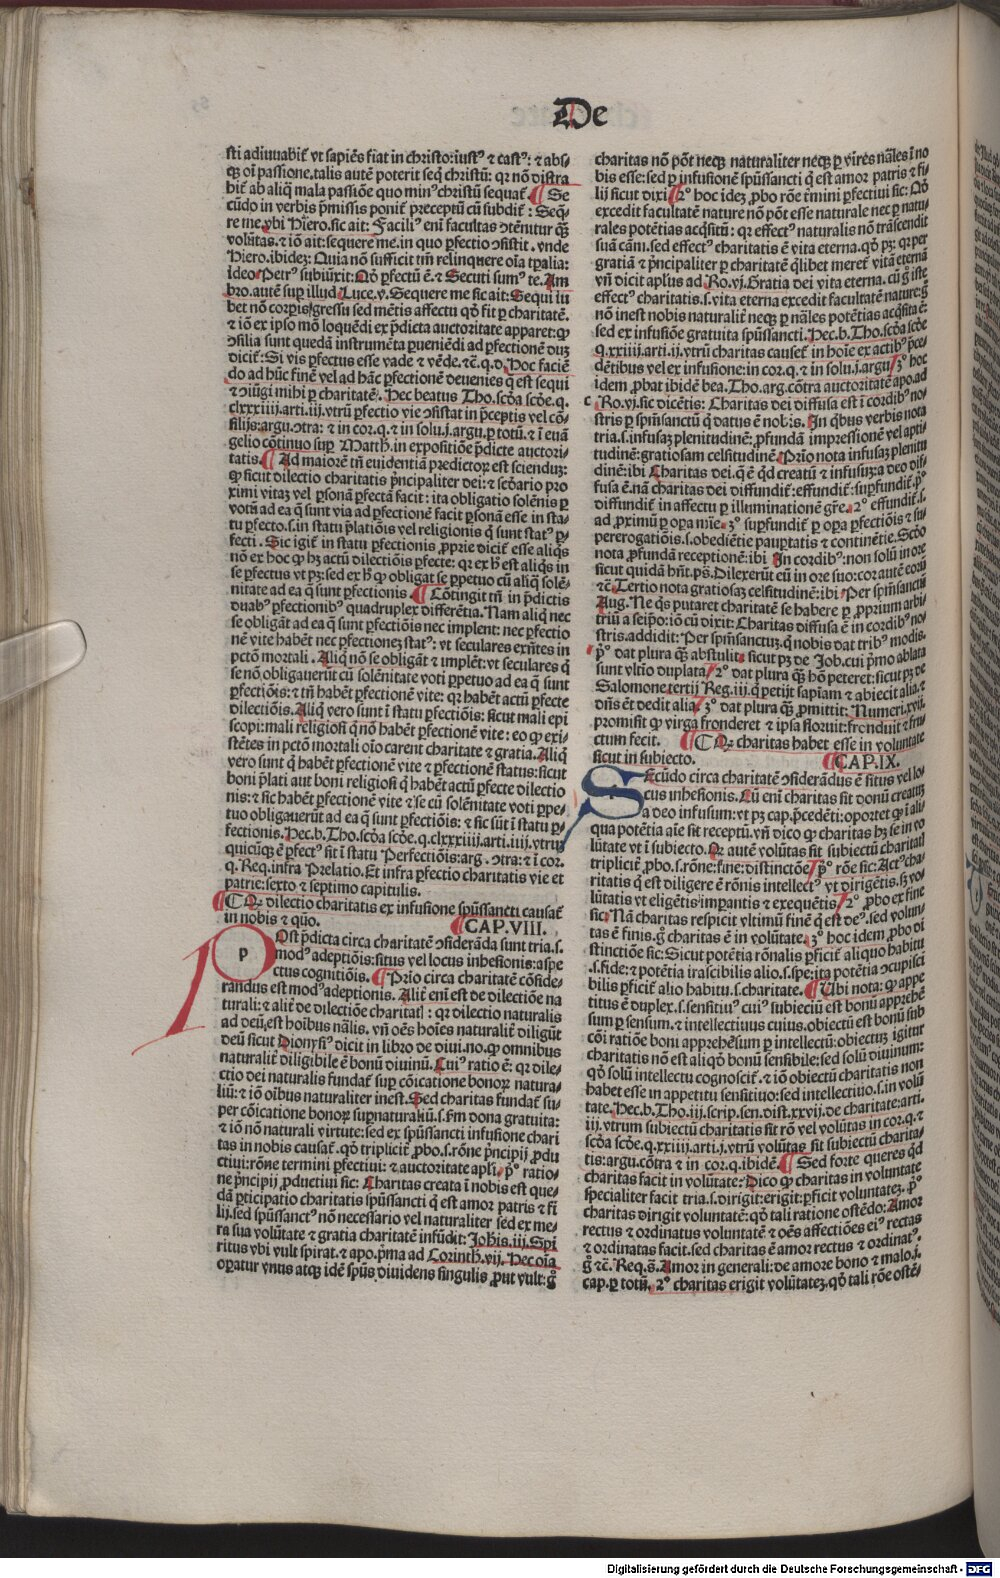 De
sti adiuuabit̄ vt sapiēs fiat in christo: iustꝰ ⁊ castꝰ: ⁊ abs⸗
qꝫ oī passione. talis autē poterit seq̄ christū: qr nō distra
hit̄ ab aliq̄ mala passiōe quo minꝰ christū sequat̄. ¶ Se
cūdo in verbis p̄missis ponit̄ preceptū cū subdit̄: Seq̄⸗
re me. vbi Hiero. sic ait: Faciliꝰ eni facultas ꝯtēnitur q̄ꝫ
volūtas. ⁊ iō ait: sequere me. in quo ꝑfectio ꝯsistit. vnde
Hiero. ibideꝫ: Quia nō sufficit tm̄ relinquere oīa tꝑalia:
ideo Petrꝰ subiūxit: Qd̄ ꝑfectū ē. ⁊ Secuti sumꝰ te. Am
bro. autē suꝑ illud Luce. v. Sequere me sic ait: Sequi iu
bet nō corꝑis gressu sed mētis affectu qd̄ fit ꝑ charitatē.
⁊ iō ex ipso mō loquēdi ex p̄dicta auctoritate apparet: ꝙ
ꝯsilia sunt quedā instrumēta ꝑueniēdi ad ꝑfectionē duꝫ
dicit̄: Si vis ꝑfectus esse vade ⁊ vēde. ⁊c̄. q. d. Hoc faciē
do ad hūc finē vel ad hāc ꝑfectionē deuenies q̄ est sequi
⁊ ꝯiūgi mihi ꝑ charitatē. Hec beatus Tho. scḋa scḋe. q.
clxxxiiij. arti. iij. vtrū ꝑfectio vie ꝯsistat in p̄ceptis vel cō⸗
silijs: argu. ꝯtra: ⁊ in cor. q. ⁊ in solu. j. argu. ꝑ totū. ⁊ ī euā
gelio cōtinuo suꝑ Matth. in expositiōe p̄dicte auctori⸗
tatis. ¶ Ad maiorē tn̄ euidentiā predictoꝝ est sciendūꝫ:
ꝙ sicut dilectio charitatis p̄ncipaliter dei: ⁊ scḋario pro
ximi vitaꝫ vel ꝑsonā ꝑfectā facit: ita obligatio solēnis ꝑ
votū ad ea q̄ sunt via ad ꝑfectionē facit ꝑsonā esse in sta⸗
tu ꝑfecto. s. in statu p̄latiōis vel religionis q̄ sunt statꝰ ꝑ⸗
fecti. Sic igit̄ in statu ꝑfectionis ꝓprie dicit̄ esse aliqs
nō ex hoc ꝙ hꝫ actū dilectiōis ꝑfecte: qr ex h̄ est aliqs in
se ꝑfectus vt pꝫ: sed ex h̄ ꝙ obligat se ꝑpetuo cū aliq̄ solē⸗
nitate ad ea q̄ sunt ꝑfectionis. ¶ Cōtingit tn̄ in p̄dictis
duabꝰ ꝑfectionibꝰ quadruplex differētia. Nam aliq̄ nec
se obligāt ad ea q̄ sunt ꝑfectiōis nec implent: nec ꝑfectio
nē vite habēt nec ꝑfectioneꝫ statꝰ: vt seculares exn̄tes in
pctō mortali. Aliq̄ nō se obligāt ⁊ implēt: vt seculares q̄
se nō obligauerūt cū solēnitate voti ꝑpetuo ad ea q̄ sunt
ꝑfectiōis: ⁊ tn̄ habēt ꝑfectionē vite: qr habēt actū ꝑfecte
dilectiōis. Aliq̄ vero sunt ī statu ꝑfectiōis: sicut mali epi
scopi: mali religiosi q̄ nō habēt ꝑfectionē vite: eo ꝙ exi⸗
stētes in pctō mortali oīo carent charitate ⁊ gratia. Aliq̄
vero sunt q̄ habēt ꝑfectionē vite ⁊ ꝑfectionē status: sicut
boni p̄lati aut boni religiosi q̄ habēt actū ꝑfecte dilectio
nis: ⁊ sic habēt ꝑfectionē vite ⁊ se cū solēnitate voti ꝑpe⸗
tuo obligauerūt ad ea q̄ sunt ꝑfectiōis: ⁊ sic sūt ī statu ꝑ⸗
fectionis. Hec. b. Tho. scḋa scḋe. q. clxxxiiij. arti. iiij. vtrū
quicūqꝫ ē ꝑfectꝰ sit ī statu Perfectiōis: arg. ꝯtra: ⁊ ī cor.
q. Req. infra Prelatio. Et infra ꝑfectio charitatis vie et
patrie: sexto ⁊ septimo capitulis.
¶ Qꝛ dilectio charitatis ex infusione spūssancti causat̄
in nobis ⁊ quō. ¶ CAP. VIII.
POst p̄dicta circa charitatē ꝯsiderāda sunt tria. s.
modꝰ adeptiōis: situs vel locus inhesionis: aspe
ctus cognitiōis. ¶ Prīo circa charitatē cōside⸗
randus est modꝰ adeptionis. Alit̄ eni est de dilectiōe na
turali: ⁊ alit̄ de dilectiōe charitat̄: qr dilectio naturalis
ad deū est hoībus nālis. vn̄ oēs hoīes naturalit̄ diligūt
deū sicut Dionysiꝰ dicit in libro de diui. no. ꝙ omnibus
naturalit̄ diligibile ē bonū diuinū. Cuiꝰ ratio ē: qr dile⸗
ctio dei naturalis fundat̄ suꝑ cōicatione bonoꝝ natura⸗
liū: ⁊ iō oībus naturaliter inest. Sed charitas fundat̄ su⸗
per cōicatione bonoꝝ suꝑnaturaliū. s. fm dona gratuita:
⁊ iō nō naturali virtute: sed ex spūssancti infusione chari
tas in nobis causat̄. qd̄ triplicit̄ ꝓbo. s. rōne p̄ncipij ꝓdu
ctiui: rōne termini ꝑfectiui: ⁊ auctoritate apli. pº ratio⸗
ne p̄ncipij ꝓductiui sic: Charitas creata ī nobis est que⸗
dā ꝑticipatio charitatis spūssancti q̄ est amor patris ⁊ fi
lij. sed spūssanctꝰ nō necessario vel naturaliter sed ex me⸗
ra sua volūtate ⁊ gratia charitatē infūdit: Johis. iij. Spi
ritus vbi vult spirat. ⁊ apo. p̄ma ad Corinth. xij. Hec oīa
oꝑatur vnus atqꝫ idē spūs diuidens singulis ꝓut vult: ḡ
charitas nō pōt neqꝫ naturaliter neqꝫ ꝑ vires nāles ī no
bis esse: sed ꝑ infusionē spūssancti q̄ est amor patris ⁊ fi⸗
lij sicut dixi. ¶ 2º hoc ideꝫ ꝓbo rōe t̄mini ꝑfectiui sic: Qd̄
excedit facultatē nature nō pōt esse naturale nec ꝑ natu⸗
rales potētias acqsitū: qr effectꝰ naturalis nō trāscendit
suā cām. sed effectꝰ charitatis ē vita eterna. qd̄ pꝫ: qr per
gratiā ⁊ p̄ncipaliter ꝑ charitatē q̄libet meret̄ vitā eternā
vn̄ dicit aplus ad Ro. vj. Gratia dei vita eterna. cū ḡ iste
effectꝰ charitatis. s. vita eterna excedit facultatē nature: ḡ
nō inest nobis naturalit̄ neqꝫ ꝑ nāles potētias acqsita ē:
sed ex infusiōe gratuita spūssancti. Hec. b. Tho. scḋa scḋe
q. xxiiij. arti. ij. vtrū charitas causet̄ in hoīe ex actibꝰ p̄ce⸗
dētibus vel ex infusione: in cor. q. ⁊ in solu. j. argu. 3º hoc
idem ꝓbat ibidē bea. Tho. arg. cōtra auctoritatē apo. ad
c Ro. vj. sic dicētis: Charitas dei diffusa est ī cordibꝰ no⸗
stris ꝑ spm̄sanctū q̄ datus ē nobis. In q̄bus verbis nota
tria. s. infusaꝫ plenitudinē: ꝓfundā impressionē vel apti⸗
tudinē: gratiosam celsitudinē. Prīo nota infusaꝫ plenitu
dinē: ibi Charitas dei. q̄ ē q̄d creatū ⁊ infusuꝫ: a deo dif⸗
fusa ē. nā charitas dei diffundit̄: effundit̄: suꝑfundit̄. pº
diffundit̄ in affectu ꝑ illuminationē gr̄e. 2º effundit̄. s.
ad ꝓximū ꝑ oꝑa mīe. 3º suꝑfundit̄ ꝑ oꝑa ꝑfectiōis ⁊ su⸗
pererogatiōis. s. obediētie pauꝑtatis ⁊ continētie. Scḋo
nota ꝓfundā receptionē: ibi In cordibꝰ: non solū in ore
sicut quidā hn̄t. ps̄. Dilexerūt eū in ore suo: cor autē eorū
⁊c̄. Tertio nota gratiosaꝫ celsitudinē: ibi Per spm̄sanctū
Aug. Ne q̄s putaret charitatē se habere ꝑ ꝓprium arbi⸗
triū a seipō: iō cū dixit: Charitas diffusa ē in cordibꝰ no⸗
stris. addidit: Per spm̄sanctuꝫ. q̄ nobis dat tribꝰ modis.
pº dat plura q̄ꝫ abstulit. sicut pꝫ de Job. cui p̄mo ablata
sunt vltīo duplata. 2º dat plura q̄ꝫ hō peteret: sicut pꝫ de
Salomone. tertij Reg. iij. q̄ petijt sapiam ⁊ abiecit alia. ⁊
dn̄s ēt dedit alia. 3º dat plura q̄ꝫ ꝓmittit: Numeri. xvij.
promisit ꝙ virga fronderet ⁊ ipsa floruit: fronduit ⁊ fru⸗
ctum fecit. ¶ Qꝛ charitas habet esse in voluntate
sicut in subiecto. ¶ CAP. IX.
SEcūdo circa charitatē ꝯsiderādus ē situs vel lo⸗
cus inhesionis. Cū eni charitas sit donū creatuꝫ
a deo infusum: vt pꝫ cap. p̄cedēti: oportet ꝙ ī ali⸗
qua potētia aīe sit receptū. vn̄ dico ꝙ charitas hꝫ se in vo
lūtate vt ī subiecto. Qꝛ autē volūtas sit subiectū charitat̄
triplicit̄ ꝓbo. s. rōne: fine: distinctōe. pº rōe sic: Actꝰ cha⸗
ritatis q̄ est diligere ē rōnis intellectꝰ vt dirigētis. sꝫ vo⸗
lūtatis vt eligētis imꝑantis ⁊ exequētis. 2º ꝓbo ex fine
sic: Nā charitas respicit vltimū finē q̄ est deꝰ. sed volun⸗
tas ē finis. ḡ charitas ē in volūtate. 3º hoc idem ꝓbo di
stinctiōe sic: Sicut potētia rōnalis ꝑficit̄ aliquo habitu
. s. fide: ⁊ potētia irascibilis alio. s. spe: ita potētia ꝯcupisci
bilis ꝑficit̄ alio habitu. s. charitate. ¶ Ubi nota: ꝙ appe
titus ē duplex. s. sensitiuꝰ cuiꝰ subiectū est bonū apprehē
sum ꝑ sensum. ⁊ intellectiuus cuius. obiectū est bonū sub
cōi ratiōe boni apprehēsum ꝑ intellectū: obiectuꝫ igitur
charitatis nō est aliqd̄ bonū sensibile: sed solū diuinum:
qd̄ solū intellectu cognoscit̄. ⁊ iō obiectū charitatis non
habet esse in appetitu sensitiuo: sed intellectiuo. s. in volū
tate. Hec. b. Tho. iij. scrip. sen. dist. xxvij. de charitate: arti.
iij. vtrum subiectū charitatis sit rō vel volūtas in cor. q. ⁊
scḋa scḋe. q. xxiiij. arti. j. vtrū volūtas sit subiectū charita⸗
tis: argu. cōtra ⁊ in cor. q. ibidē. ¶ Sed forte queres q̄d
charitas facit in volūtate: Dico ꝙ charitas in voluntate
specialiter facit tria. s. dirigit: erigit: ꝑficit voluntateꝫ. pº
charitas dirigit voluntatē: qd̄ tali ratione ostēdo: Amor
rectus ⁊ ordinatus voluntatē ⁊ oēs affectiōes eiꝰ rectas
⁊ ordinatas facit. sed charitas ē amor rectus ⁊ ordinatꝰ.
ḡ ⁊c̄. Req. s̄. Amor in generali: de amore bono ⁊ malo. j.
cap. ꝑ totū. 2º charitas erigit volūtateꝫ. qd̄ tali rōe ostē⸗
Digitalisierung gefördert durch die Deutsche Forschungsgemeinschaft - DFG